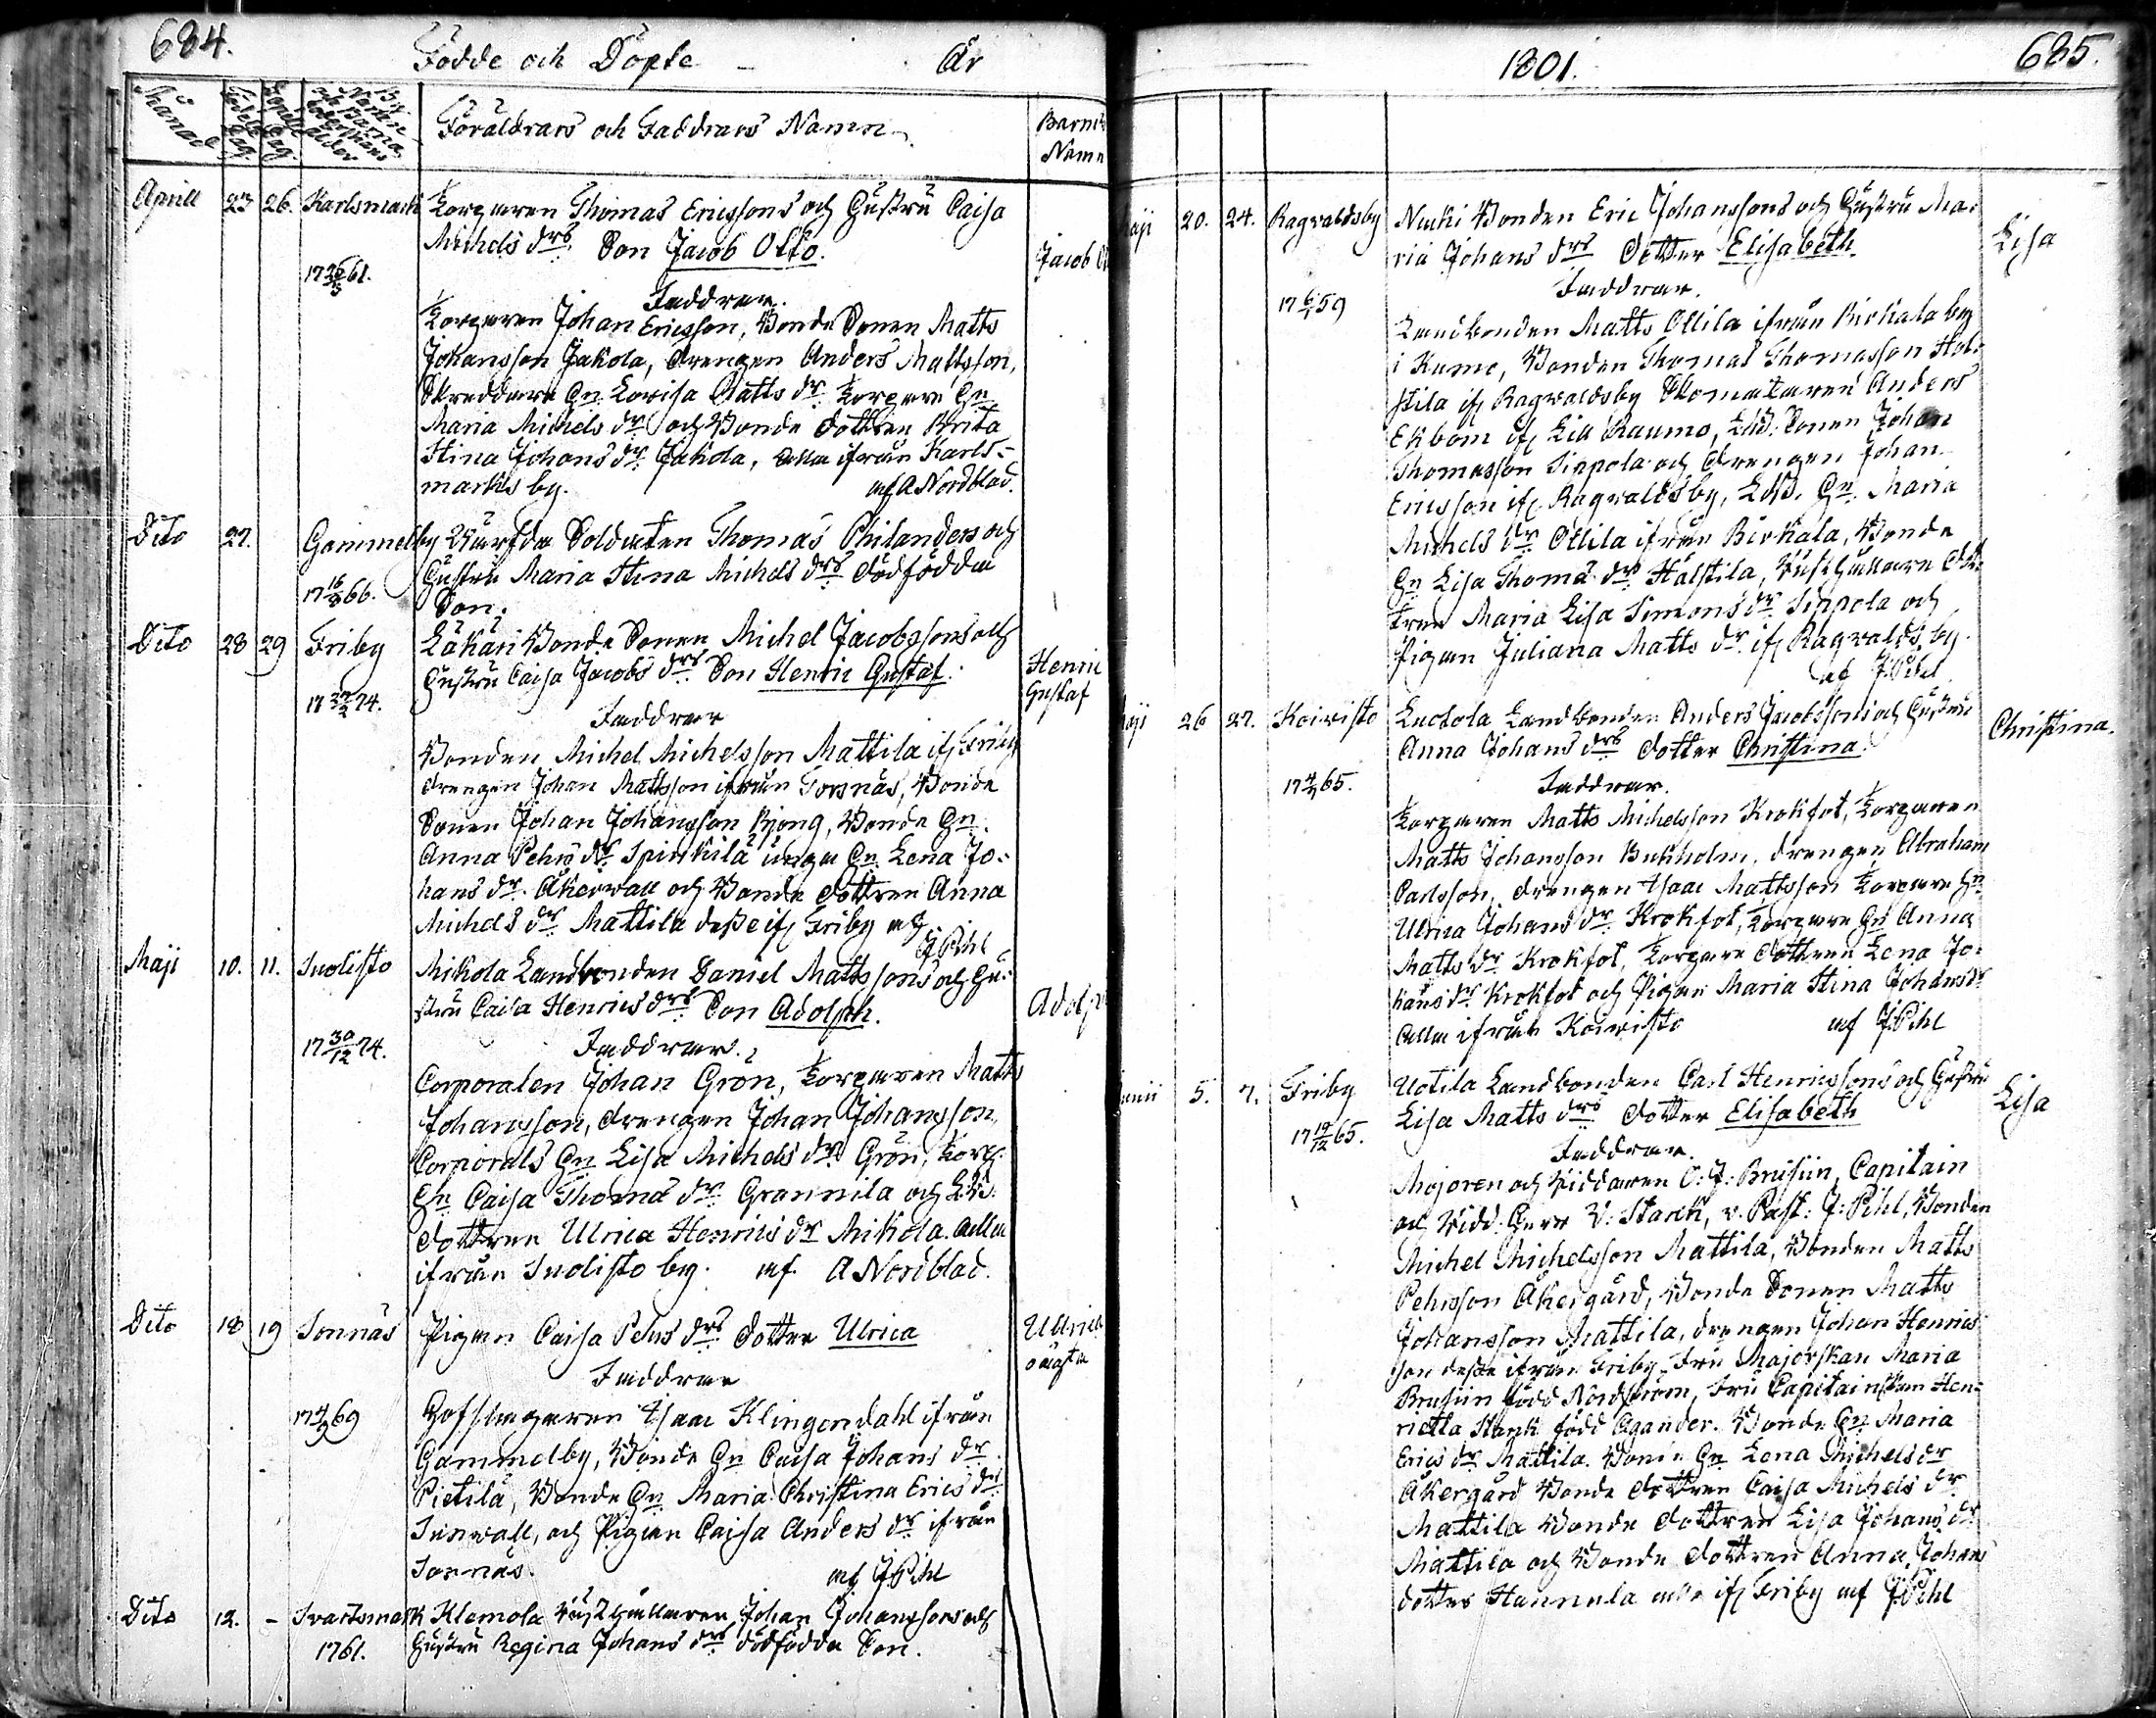 684.
Födde och Döpte - År
Månad Födelse Dag. Döpelse Dag. By Namn och Barna föderskans ålder
Föräldrars och Faddrars Namn
Barnets Namn
Aprill 23 26. Karlsmark Torparen Thomas Ericssons och Hustru Caisa
Michels drs Son Jacob Otto. Jacob
17 61.
Faddrar.
Torparen Johan Ericsson, Bonde Sonen Matts
Johansson Jakola, drengen Anders Mattsson,
Skreddare Hn Lovisa Matts dr Torpare Hn
Maria Michels dr och Bonde dottren Brita
Stina Johans dr Jakola, alla ifrån Karls-
marks by. af A Nordblad.
Dito 27. Gammelby Soldaten Thomas Philanders och
Hustru Maria Stina Michels drs dödfödda
17 66. Son.
Dito 28 29 Friby Läkäri Bonde Sonen Michel Jacobssons och
Hustru Caisa Jacobs drs Son Henric Gustaf. Henric Gustaf
17 74.
Faddrar
Bonden Michel Michelsson Mattila if Friby
drengen Johan Mattsson ifrån Torsnäs, Bonde
Sonen Johan Johansson Björng, Bonde Hn
Anna Pehrs dr Spinkilä unga Hn Lena Jo-
hans dr Åkerwall och Bonde dottren Anna
Michels dr Mattila desse if Friby af
J Pihl
Maji 10. 11. Suolisto Mikola Landbonden Daniel Mattssons och Hu-
stru Caisa Henrics drs Son Adolph. Adolp
17 30/12 74.
Faddrar.
Corporalen Johan Grön, Torparen Matts
Johansson, drengen Johan Johansson,
Corporals Hn Lisa Michels dr Grön, Torp.
Hn Caisa Thomas dr Grannila och LB:
dottren Ulrica Henrics dr Mikola. alla
ifrån Suolisto by. af A Nordblad.
Dito 18 19 Sonnäs Pigan Caisa Pehrs drs dotter Ulrica Ulrica
oäagta
Faddrar
17 69 Hofslagaren Isaac Klingendahl ifrån
Gammelby, Bonde Hn Caisa Johans dr
Pietilä, Bonde Hn Maria Christina Erics dr
Sunwall, och Pigan Caisa Anders dr ifrån
Sonnäs. af J Pihl
Dito 12. - Svartsmark Klemola Johan Johanssons och
1761. Hustru Regina Johans drs dödfödda Son.
1801. 685.
aji 20. 24. Ragvaldsby Nuuki Bonden Eric Johanssons och Hustru Ma-
ria Johans drs Dotter Elisabeth Lisa
Faddrar.
17 59 Landbonden Matts Ollila ifrån Pirkala by
i Kumo, Bonden Thomas Thomasson Hol-
stila if Ragvaldsby Skomakaren Anders
Ekbom if Lill Raumo, LB: Sonen Johan
Thomasson Sippola och drengen Johan
Ericsson if Ragvaldsby, LB. Hn Maria
Michels dr Ollila ifrån Birkala, Bonde
Hn Lisa Thoma dr Hålstila, dot-
tren Maria Lisa Simons dr Sippola och
Pigan Juliana Matts dr if Ragvalds by.
af J Pihl
aji 26 27. Koivisto Luotola Landbonden Anders Jacobssons och Hustru
Anna Johans drs dotter Christina. Christina.
17 65.
Faddrar.
Torparen Matts Michelsson Krokfot, Torparen
Matts Johansson Bukholm, drengen Abraham
Carlsson, drengen Isaac Mattsson Torpare Hn
Ulrica Johans dr Krokfot, Torpare Hn Anna
Matts dr Krokfot, Torpare dottren Lena Jo-
hans dr Krokfot och Pigan Maria Stina Johans dr
alla ifrån Koivisto af J Pihl
unii 5. 7. Friby Uotila Landbonden Carl Henricssons och Hustru
Lisa Matts drs dotter Elisabeth Lisa
17 19/12 65.
Faddrar.
Majoren och Riddaren O: J: Brusiin, Capitain
och Ridd. Herr V: Starck, v. Past: J: Pihl, Bonden
Michel Michelsson Mattila, Bonden Matts
Pehrsson Åkergård, Bonde Sonen Matts
Johansson Mattila, drengen Johan Henrics
son desse ifrån Friby. Fru Majorskan Maria
Brusiin född Nordström, Fru Capitainskan Hen-
rietta Stark född Agander. Bonde Hn Maria
Erics dr Mattila. Bonde Hn Lena Michels dr
Åkergård Bonde dottren Caisa Michels dr
Mattila Bonde dottren Lisa Johans dr
Mattila och Bonde dottren Anna Johans
dotter Hannula alla if Friby af J Pihl